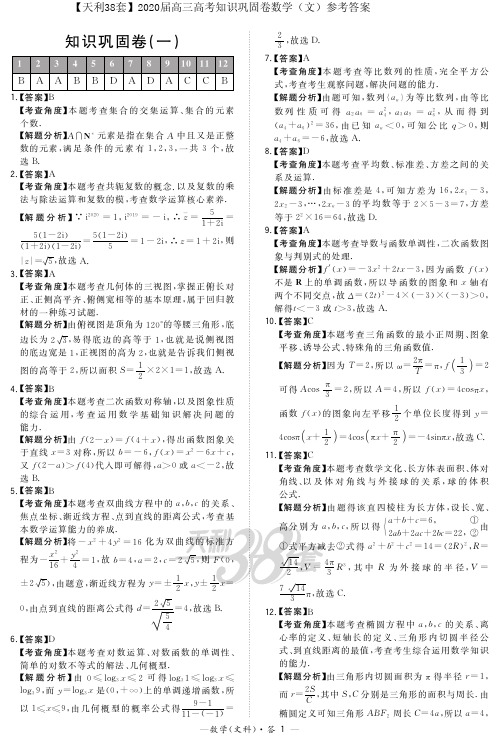 【天利38套】2020届高三高考知识巩固卷数学（文）参考答案
知识巩固卷(一)
1 2 3 4 5 6 7 8 9 10 11 12
B A A B B D A D A C C B
1.【答案】B
【考查角度】本题考查集合的交集运算、集合的元素
个数.
【解题分析】A∩N* 元素是指在集合 A 中且又是正整
数的元素,满足条件的元素有 1,2,3,一共 3 个,故
选 B.
2.【答案】A
【考查角度】本题考查共轭复数的概念、以及复数的乘
法与除法运算和复数的模,考查数学运算核心素养.
【解题分析】∵ i²⁰²⁰ = 1, i²⁰¹⁹ = − i, ∴ z = 5/(1+2i) =
5(1−2i)/((1+2i)(1−2i)) = 5(1−2i)/5 = 1−2i, ∴ z̄ = 1+2i, 则
|z̄| = √5, 故选 A.
3.【答案】A
【考查角度】本题考查几何体的三视图,掌握正俯长对
正、正侧高平齐、俯侧宽相等的基本原理,属于回归教
材的一种练习试题.
【解题分析】由俯视图是顶角为 120°的等腰三角形,底
边长为 2√3,易得底边的高等于 1,也就是说侧视图
的底边宽是 1,正视图的高为 2,也就是告诉我们侧视
图的高等于 2,所以面积 S= 1/2 ×2×1=1,故选 A.
4.【答案】B
【考查角度】本题考查二次函数对称轴,以及图象性质
的综合运用,考查运用数学基础知识解决问题的
能力.
【解题分析】由 f(2−x)=f(4+x),得出函数图象关
于直线 x=3 对称,所以 b=−6,f(x)=x²−6x+c,
又 f(2−a)>f(4)代人即可解得,a>0 或 a<−2,故
选 B.
5.【答案】B
【考查角度】本题考查双曲线方程中的 a,b,c 的关系、
焦点坐标、渐近线方程、点到直线的距离公式,考查基
本数学运算能力的养成.
【解题分析】将−x²+4y²=16 化为双曲线的标准方
程为−x²/16+y²/4=1,故 b=4,a=2,c=2√5,则 F(0,
±2√5),由题意,渐近线方程为 y=±1/2x,y±1/2x=
0,由点到直线的距离公式得 d=2√5/√(5/4)=4,故选 B.
6.【答案】D
【考查角度】本题考查对数运算、对数函数的单调性、
简单的对数不等式的解法、几何概型.
【解题分析】由 0≤log₃x≤2 可得 log₃1≤log₃x≤
log₃9,而 y=log₃x 是(0,+∞)上的单调递增函数,所
以 1≤x≤9,由几何概型的概率公式得 (9−1)/(11−(−1)) =
2/3,故选 D.
7.【答案】A
【考查角度】本题考查等比数列的性质,完全平方公
式,考查考生观察问题,解决问题的能力.
【解题分析】由题可知,数列{aₙ}为等比数列,由等比
从而得到
由已知 aₙ<0,可知公比 q>0,则
故选 A.
8.【答案】D
【考查角度】本题考查平均数、标准差、方差之间的关
系及运算.
【解题分析】由标准差是 4,可知方差为 16,2x₁−3,
2x₂−3,…,2xₙ−3 的平均数等于 2×5−3=7,方差
等于 2²×16=64,故选 D.
9.【答案】A
【考查角度】本题考查导数与函数单调性,二次函数图
象与判别式的处理.
【解题分析】f′(x)=−3x²+2tx−3,因为函数 f(x)
不是 R 上的单调函数,所以导函数的图象和 x 轴有
两个不同交点,故 Δ=(2t)²−4×(−3)×(−3)>0,
解得t<−3 或 t>3,故选 A.
10.【答案】C
【考查角度】本题考查三角函数的最小正周期、图象
平移、诱导公式、特殊角的三角函数值.
【解题分析】因为 T=2,所以 ω=2π/T=π,f(1/3)=2
可得 Acos π/3=2,所以 A=4,所以 f(x)=4cosπx,
函数 f(x)的图象向左平移 1/2 个单位长度得到 y=
4cosπ(x+1/2)=4cos(πx+π/2)=−4sinπx,故选 C.
11.【答案】C
【考查角度】本题考查数学文化、长方体表面积、体对
角线、以及体对角线与外接球的关系,球的体积
公式.
【解题分析】由题得该直四棱柱为长方体,设长、宽、
高分别为 a,b,c,所以得 {a+b+c=6, ① 2ab+2ac+2bc=22, ② 由
①式平方减去②式得 a²+b²+c²=14=(2R)²,R=
√14/2,V=4π/3 R³,其中 R 为外接球的半径,V=
7√14/3 π,故选 C.
12.【答案】B
【考查角度】本题考查椭圆方程中 a,b,c 的关系、离
心率的定义、短轴长的定义、三角形内切圆半径公
式、到直线距离的最值,考查考生综合运用数学知识
的能力.
【解题分析】由三角形内切圆面积为 π 得半径 r=1,
而 r=2S/C,其中 S,C 分别是三角形的面积与周长.由
椭圆定义可知三角形 ABF₂ 周长 C=4a,所以 a=4,
—数学(文科)·答 1 —